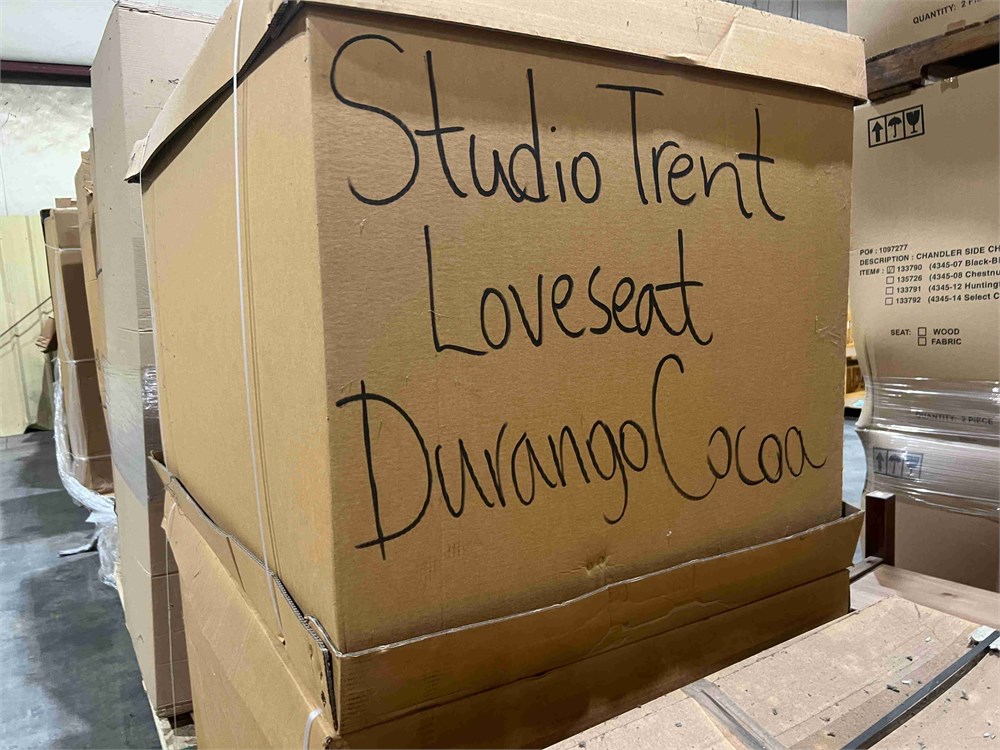 Studio Trent
Loveseat
Durango Cocoa
QUANTITY: 2 PIECE
PO# : 1097277
DESCRIPTION : CHANDLER SIDE CH
ITEM# : 133790 (4345-07 Black-Bl
135726 (4345-08 Chestnu
133791 (4345-12 Hunting
133792 (4345-14 Select C
SEAT: WOOD
FABRIC
QUANTITY: 2 PIECE